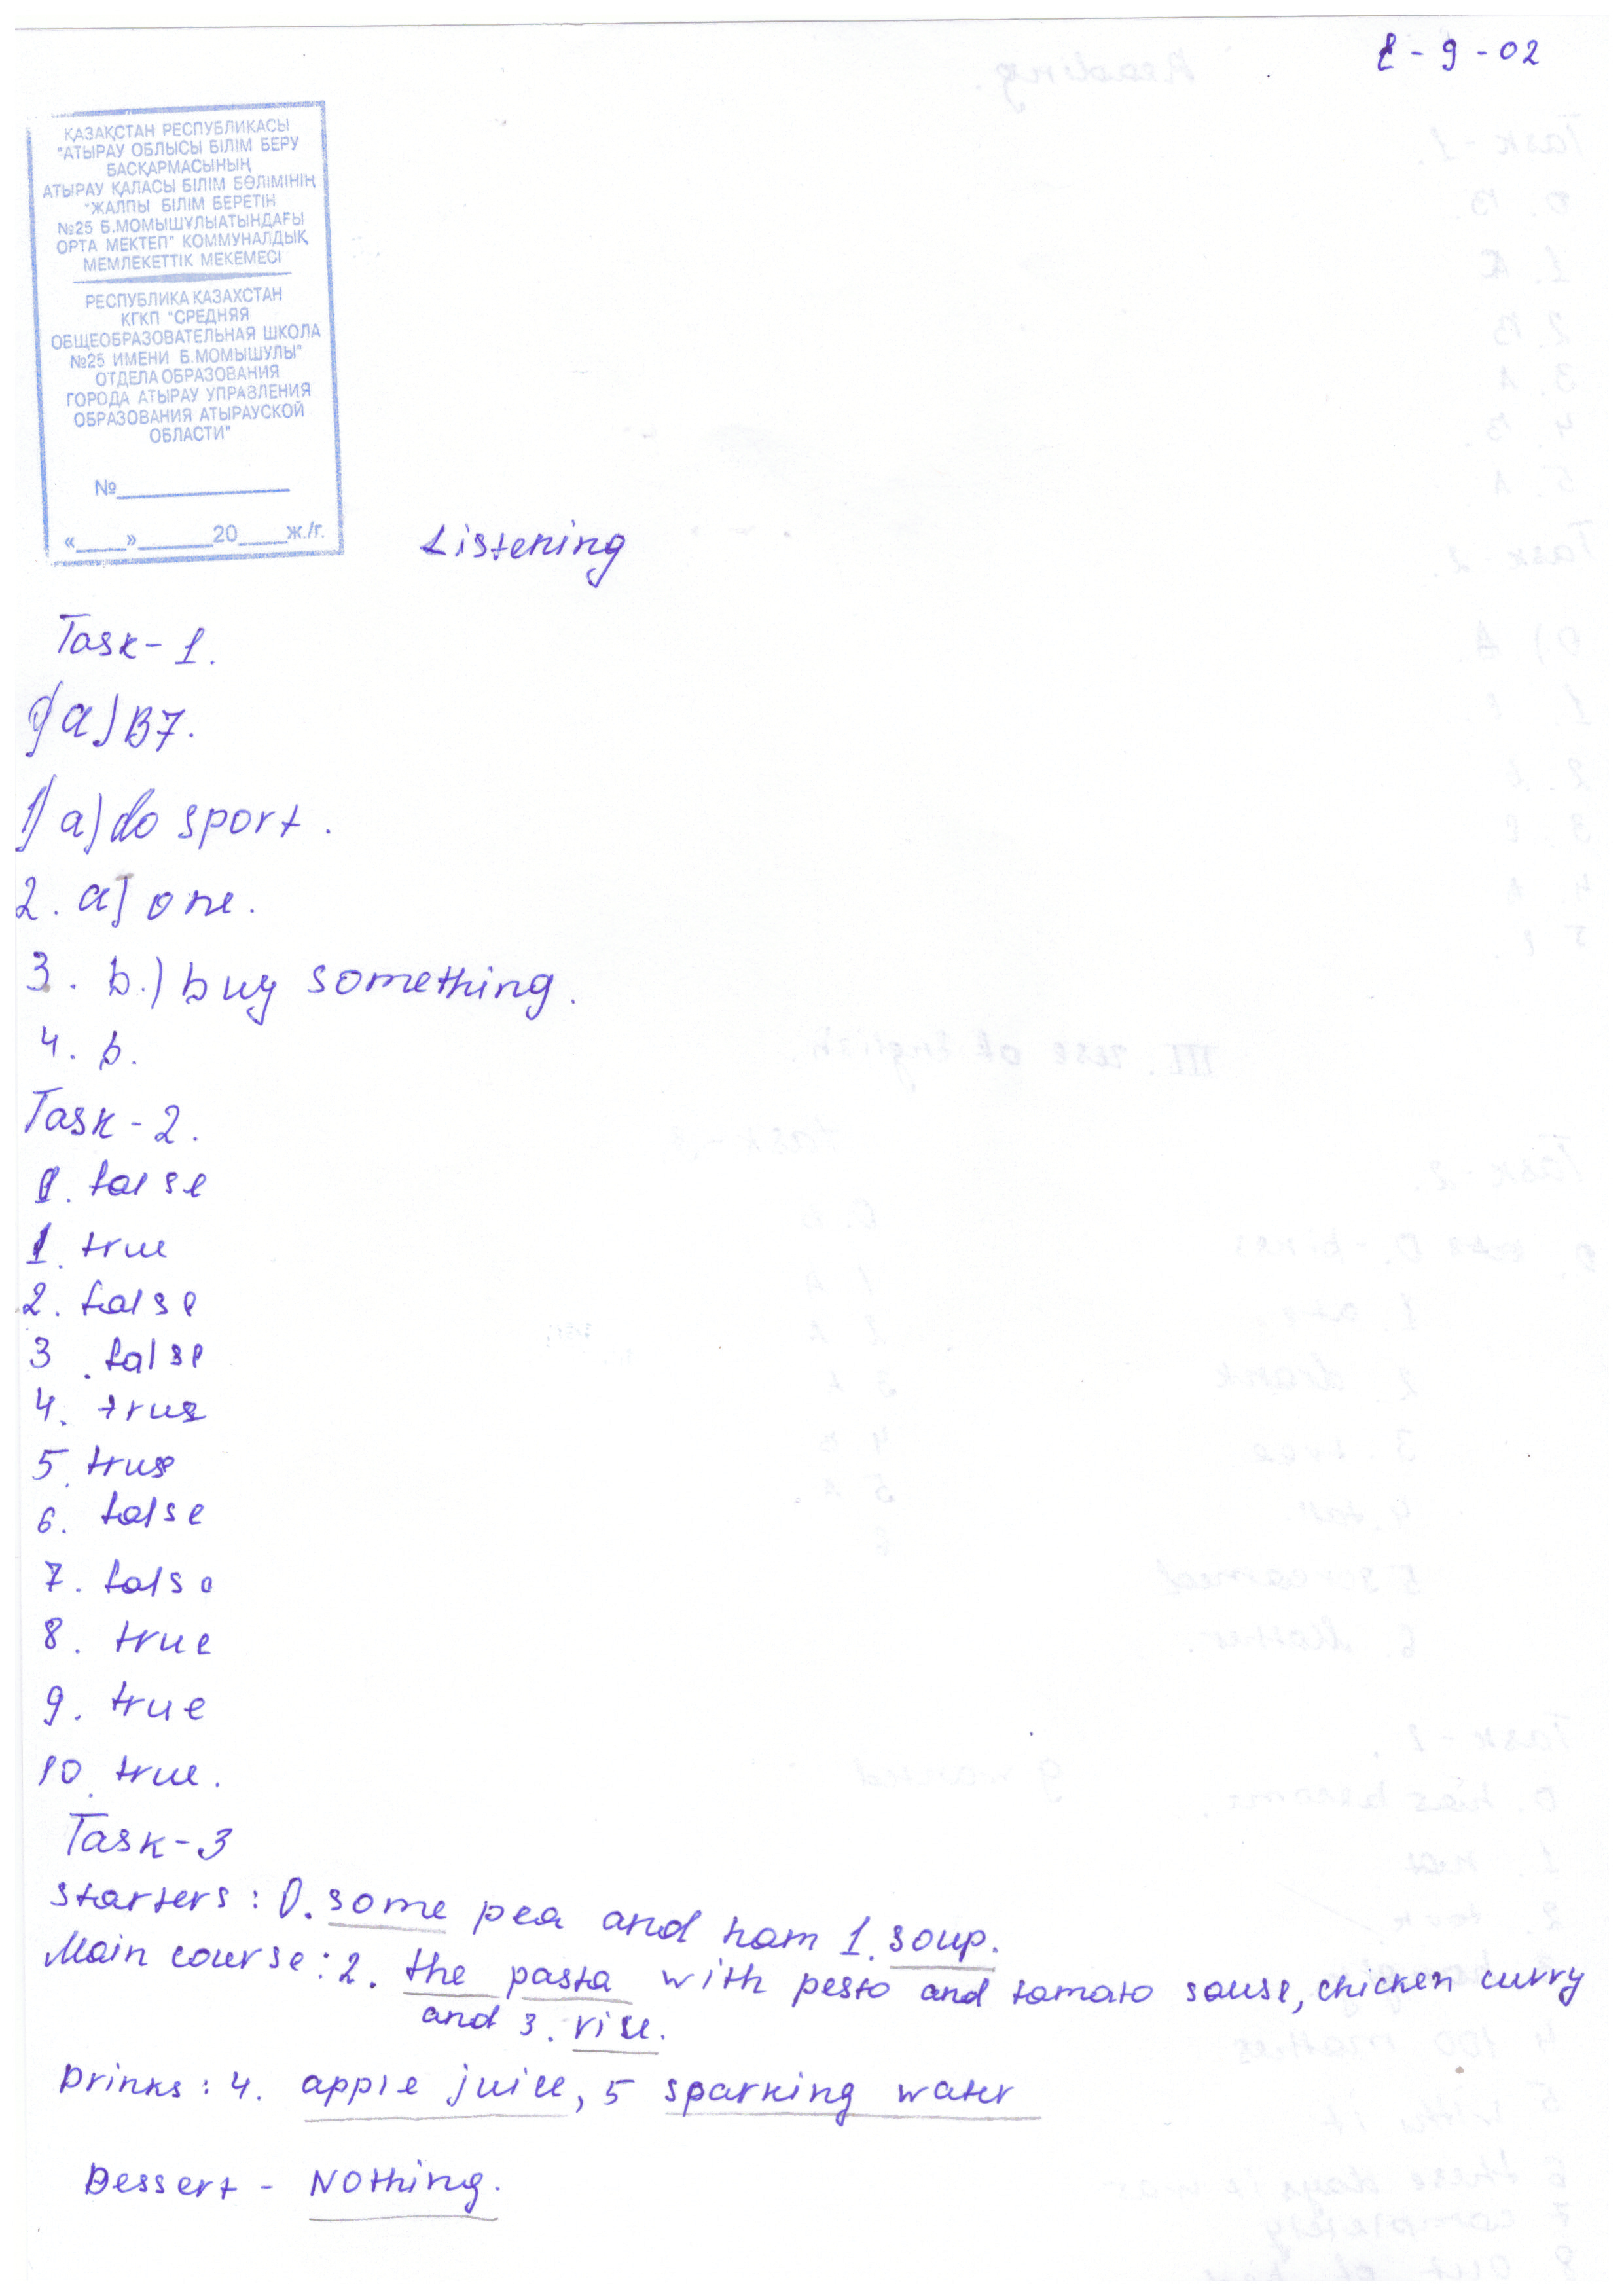 E - 9 - 02
ҚАЗАҚСТАН РЕСПУБЛИКАСЫ
"АТЫРАУ ОБЛЫСЫ БІЛІМ БЕРУ
БАСҚАРМАСЫНЫҢ
АТЫРАУ ҚАЛАСЫ БІЛІМ БӨЛІМІНІҢ
"ЖАЛПЫ БІЛІМ БЕРЕТІН
№25 Б.МОМЫШҰЛЫАТЫНДАҒЫ
ОРТА МЕКТЕП" КОММУНАЛДЫҚ
МЕМЛЕКЕТТІК МЕКЕМЕСІ
РЕСПУБЛИКА КАЗАХСТАН
КГКП "СРЕДНЯЯ
ОБЩЕОБРАЗОВАТЕЛЬНАЯ ШКОЛА
№25 ИМЕНИ Б.МОМЫШУЛЫ"
ОТДЕЛА ОБРАЗОВАНИЯ
ГОРОДА АТЫРАУ УПРАВЛЕНИЯ
ОБРАЗОВАНИЯ АТЫРАУСКОЙ
ОБЛАСТИ"
№
« » 20 ж./г.
Listening
Task-1.
0) a) B7.
1) a) do sport.
2. a) one.
3. b.) buy something.
4. b.
Task-2.
0. false
1. true
2. false
3. false
4. true
5. true
6. false
7. false
8. true
9. true
10. true.
Task-3
Starters: 0. some pea and ham 1. soup.
Main course: 2. the pasta with pesto and tomato souse, chicken curry
and 3. rise.
Drinks: 4. apple juice, 5 sparking water
Dessert - Nothing.